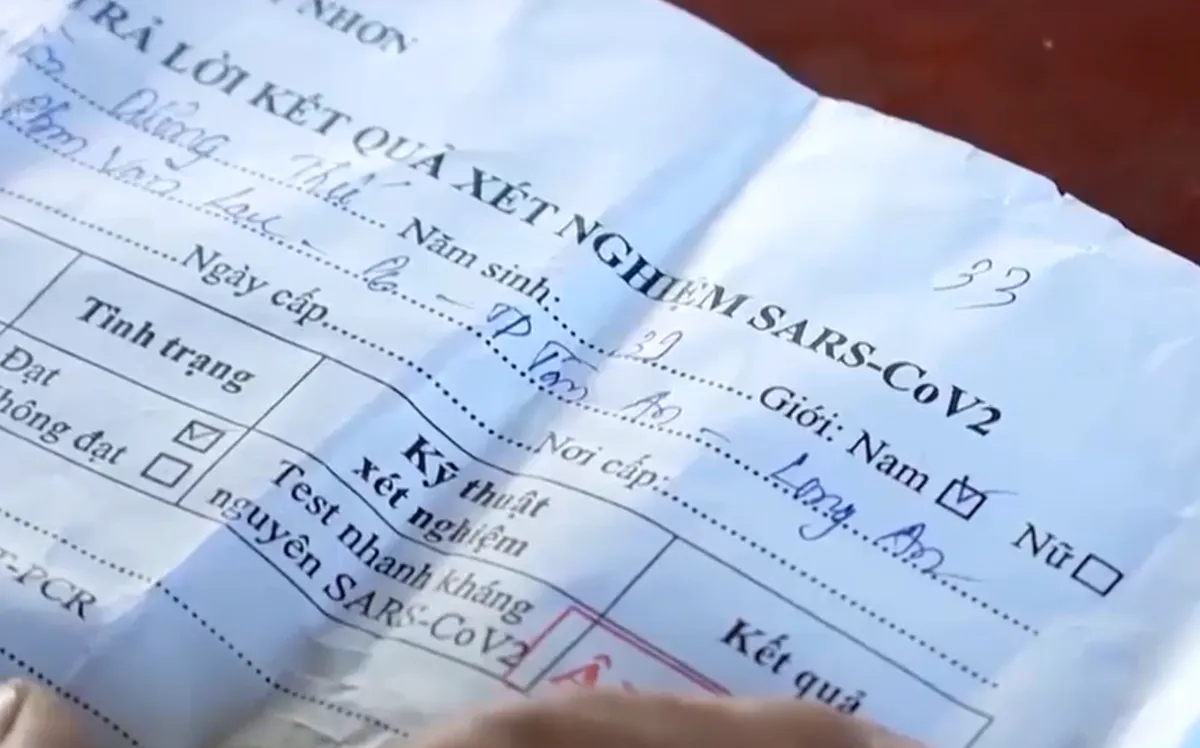 NHƠN
TRẢ LỜI KẾT QUẢ XÉT NGHIỆM SARS-CoV2
33
Dương Thế Năm sinh: 39 Giới: Nam ☑ Nữ ☐
Văn Lau - - TP Tân An - Long An
Ngày cấp Nơi cấp:
Tình trạng
Kỹ thuật xét nghiệm
Kết quả
Đạt ☑
hông đạt ☐
Test nhanh kháng
nguyên SARS-CoV2
T-PCR